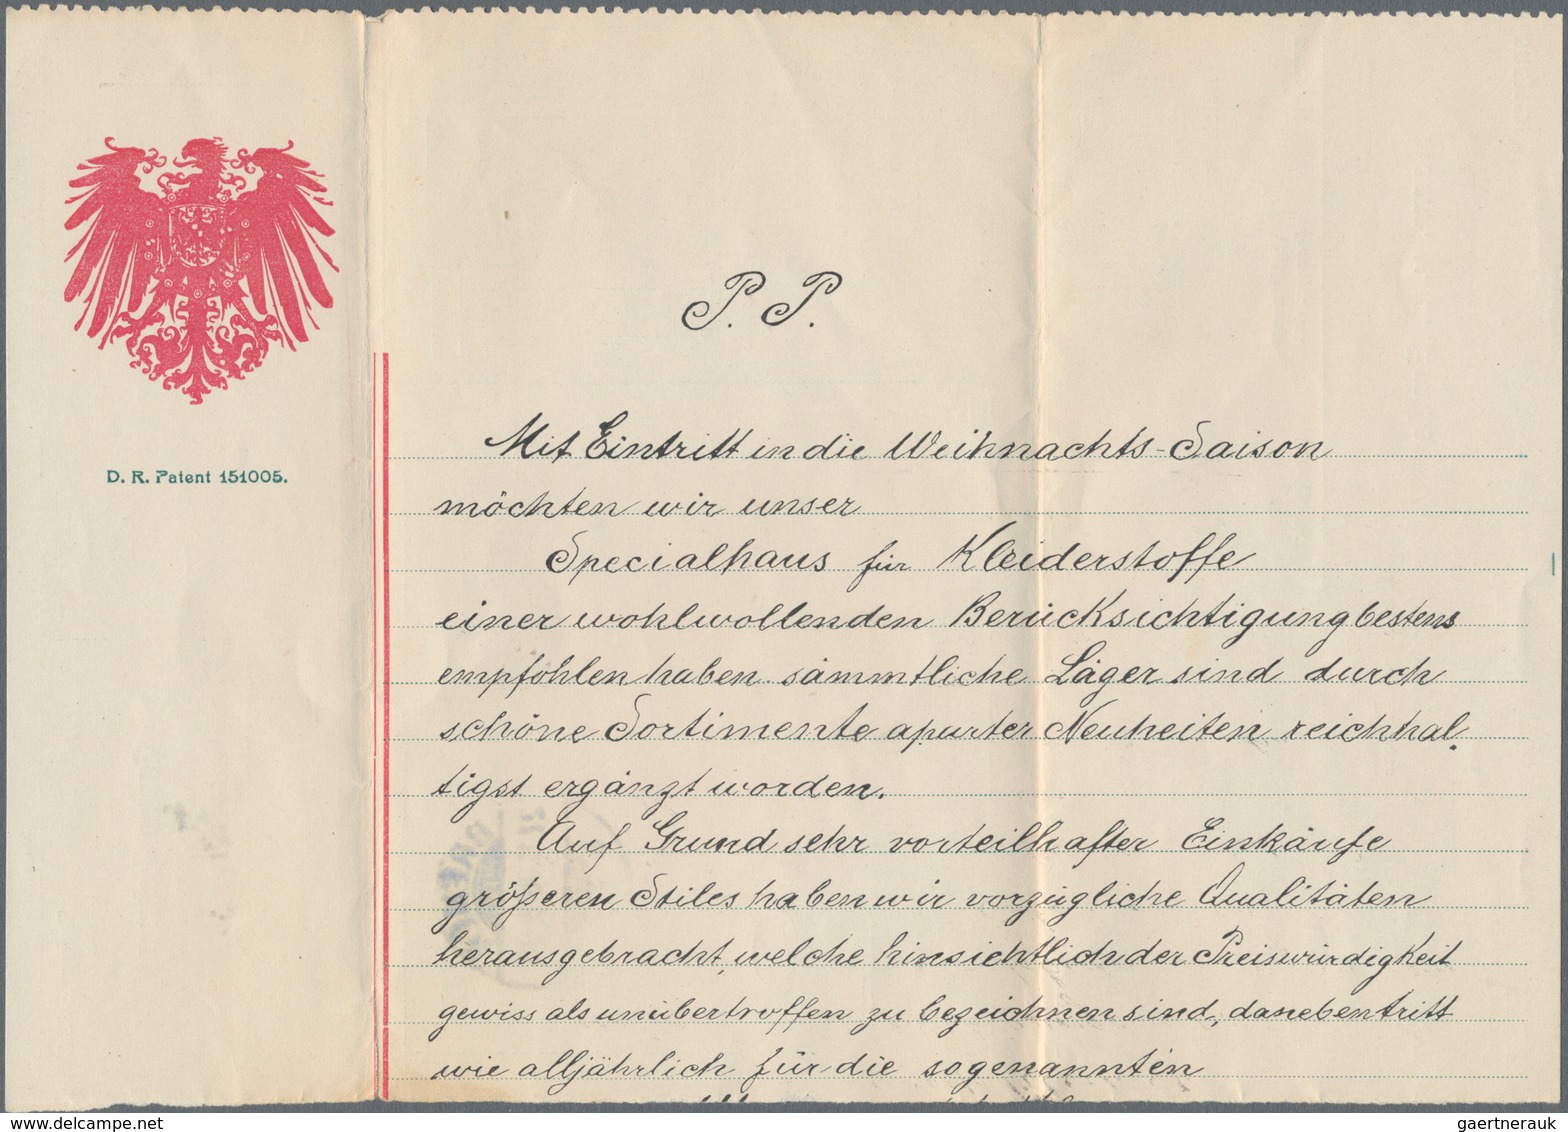 P. P.
D. R. Patent 151005.
Mit Eintritt in die Weihnachts-Saison
möchten wir unser
Specialhaus für Kleiderstoffe
einer wohlwollenden Berücksichtigung bestens
empfohlen haben sämmtliche Läger sind durch
schöne Sortimente aparter Neuheiten reichhal-
tigst ergänzt worden.
Auf Grund sehr vorteilhafter Einkäufe
größeren Stiles haben wir vorzügliche Qualitäten
herausgebracht, welche hinsichtlich der Preiswürdigkeit
gewiss als unübertroffen zu bezeichnen sind, danebentritt
wie alljährlich für die sogenannten
gaertnerauk @ delcampe.net